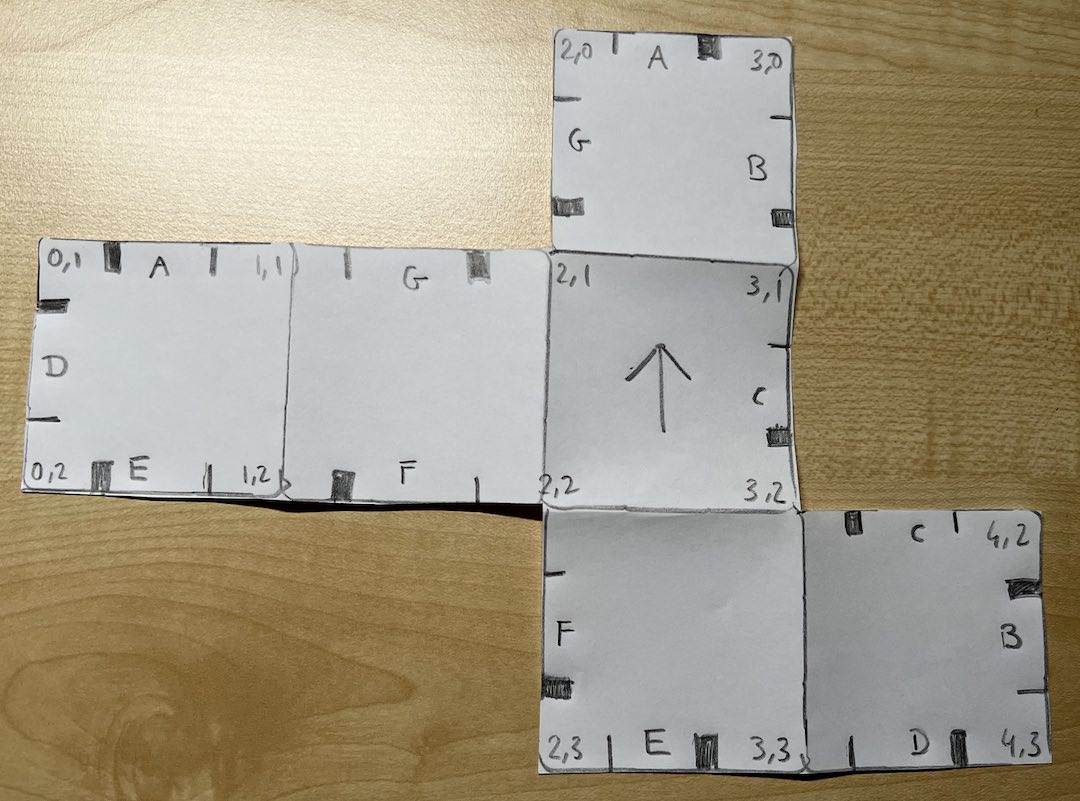 2,0 A 3,0
G
B
0,1 A 1,1 G 2,1 3,1
D C
0,2 E 1,2 F 2,2 3,2
C 4,2
F B
2,3 E 3,3 D 4,3